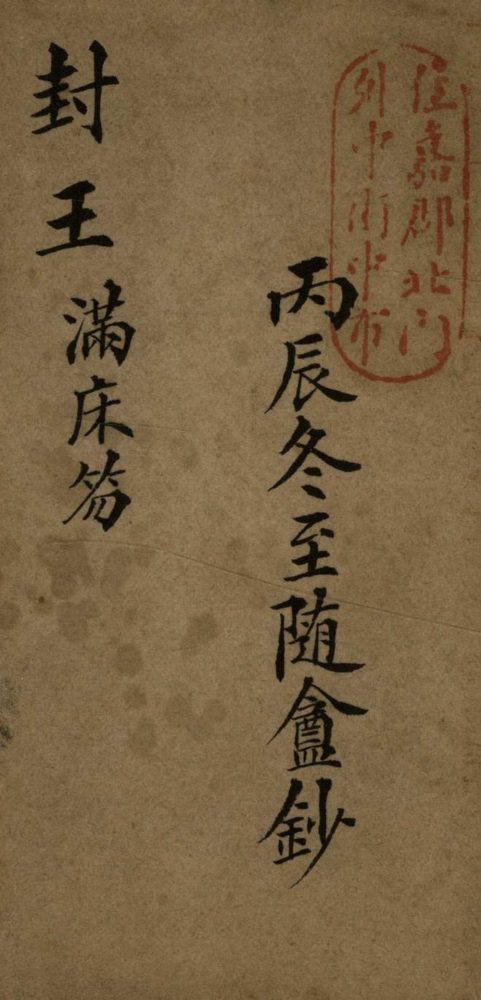 住嘉郡北门
中街中市
丙辰冬至随盦鈔
封王
滿床笏